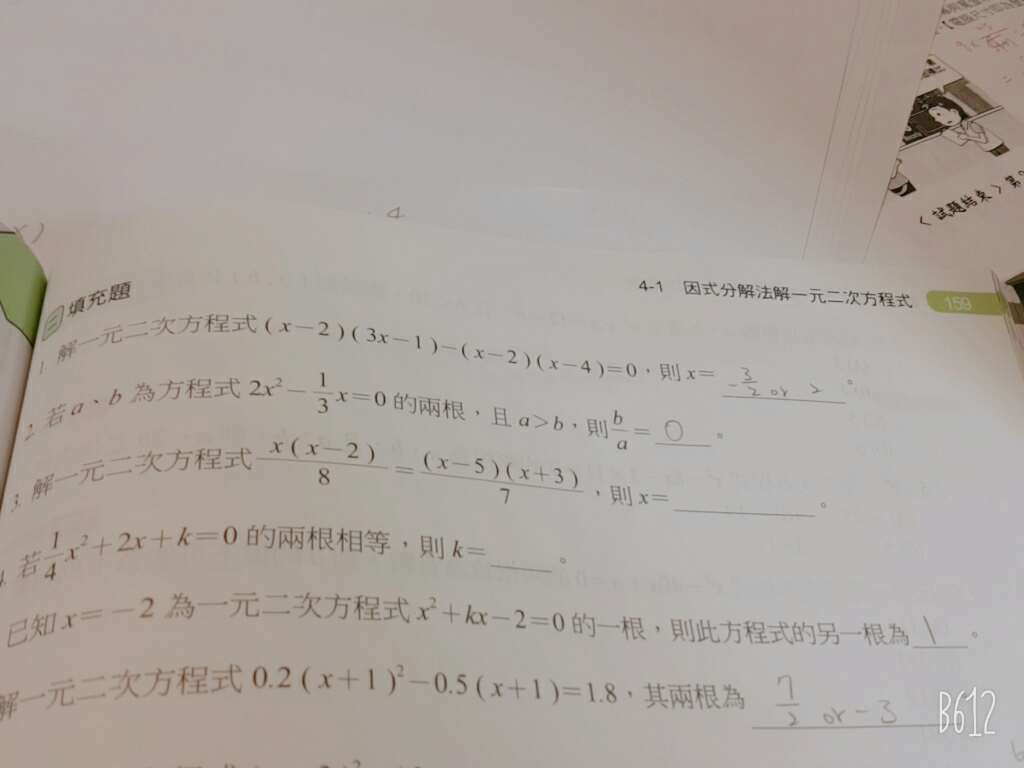 <試題結束>第
4
4-1 因式分解法解一元二次方程式 159
三 填充題
1. 解一元二次方程式(x-2)(3x-1)-(x-2)(x-4)=0,則x= -3/2 or 2 。
2. 若a、b為方程式2x²-1/3x=0的兩根,且a>b,則b/a= 0 。
3. 解一元二次方程式 x(x-2)/8=(x-5)(x+3)/7,則x=______。
4. 若1/4x²+2x+k=0的兩根相等,則k=____。
已知x=-2為一元二次方程式x²+kx-2=0的一根,則此方程式的另一根為 1 。
解一元二次方程式0.2(x+1)²-0.5(x+1)=1.8,其兩根為 7/2 or -3
B612